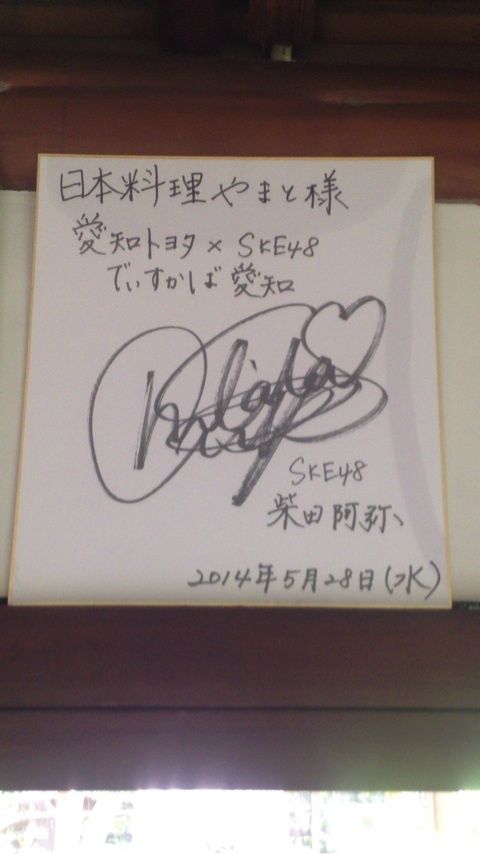 日本料理やまと様
愛知トヨタ×SKE48
でぃすかば愛知
SKE48
柴田阿弥
2014年5月28日(水)